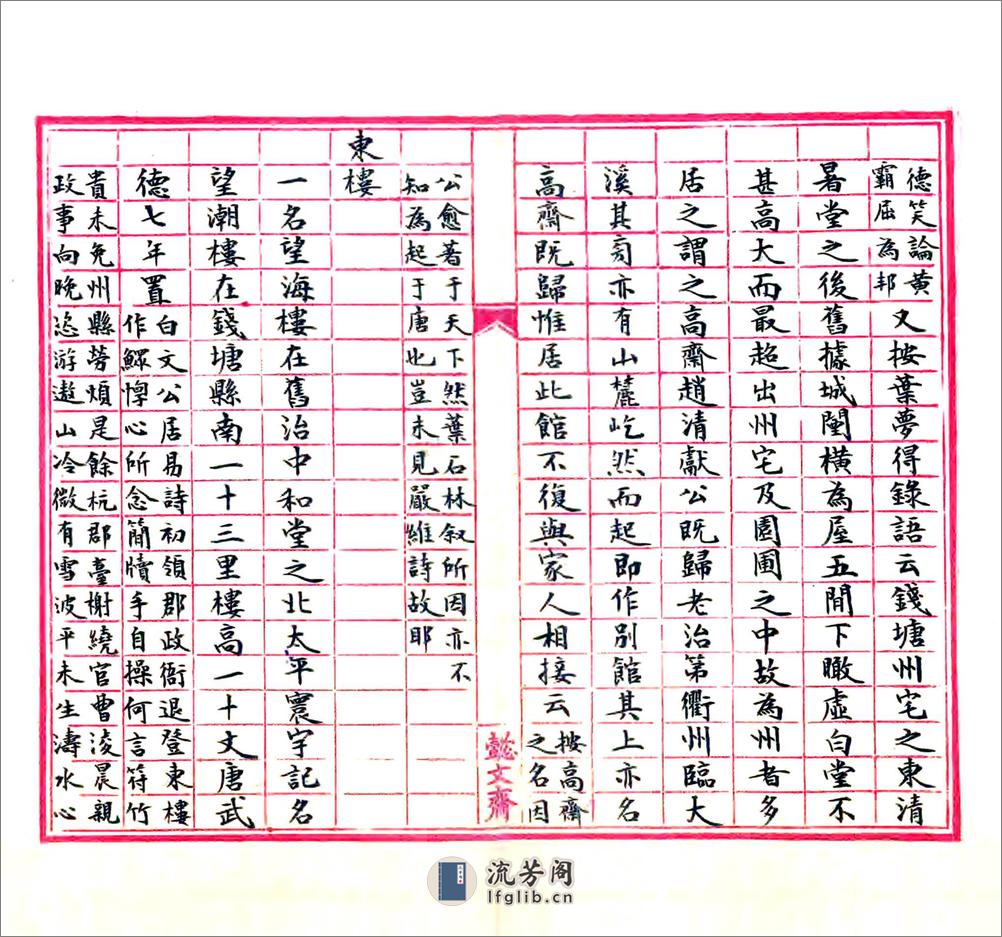 德笑論黃
霸屈為邦
又按葉夢得錄語云錢塘州宅之東清
暑堂之後舊據城闉橫為屋五間下瞰虛白堂不
甚高大而最超出州宅及園圃之中故為州者多
居之謂之高齋趙清獻公既歸老治第衢州臨大
溪其旁亦有山麓屹然而起即作別館其上亦名
高齋既歸惟居此館不復與家人相接云
按高齋
之名因
懿文齋
公愈著于天下然葉石林叙所因亦不
知為起于唐也豈未見嚴維詩故耶
東樓
一名望海樓在舊治中和堂之北太平寰宇記名
望潮樓在錢塘縣南一十三里樓高一十丈唐武
德七年置
白文公居易詩初領郡政衙退登東樓
作鰥惸心所念簡牘手自操何言符竹
貴未免州縣勞煩是餘杭郡臺榭繞官曹淩晨親
政事向晚恣游遨山冷微有雪波平未生濤水心
流芳阁
lfglib.cn